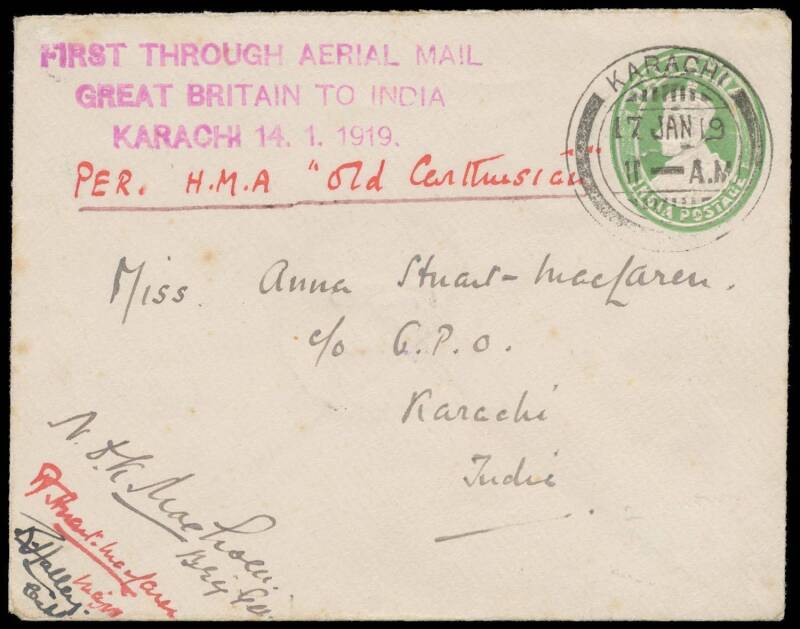 FIRST THROUGH AERIAL MAIL
GREAT BRITAIN TO INDIA
KARACHI 14. 1. 1919.
PER. H.M.A "Old Carthusian"
KARACHI
17 JAN 19
A.M
INDIA POSTAGE
Miss. Anna Stuart-MacLaren.
c/o G.P.O.
Karachi
India
N. D. K. MacEwen.
Brig Gen.
Stuart-MacLaren
Major
Halley.